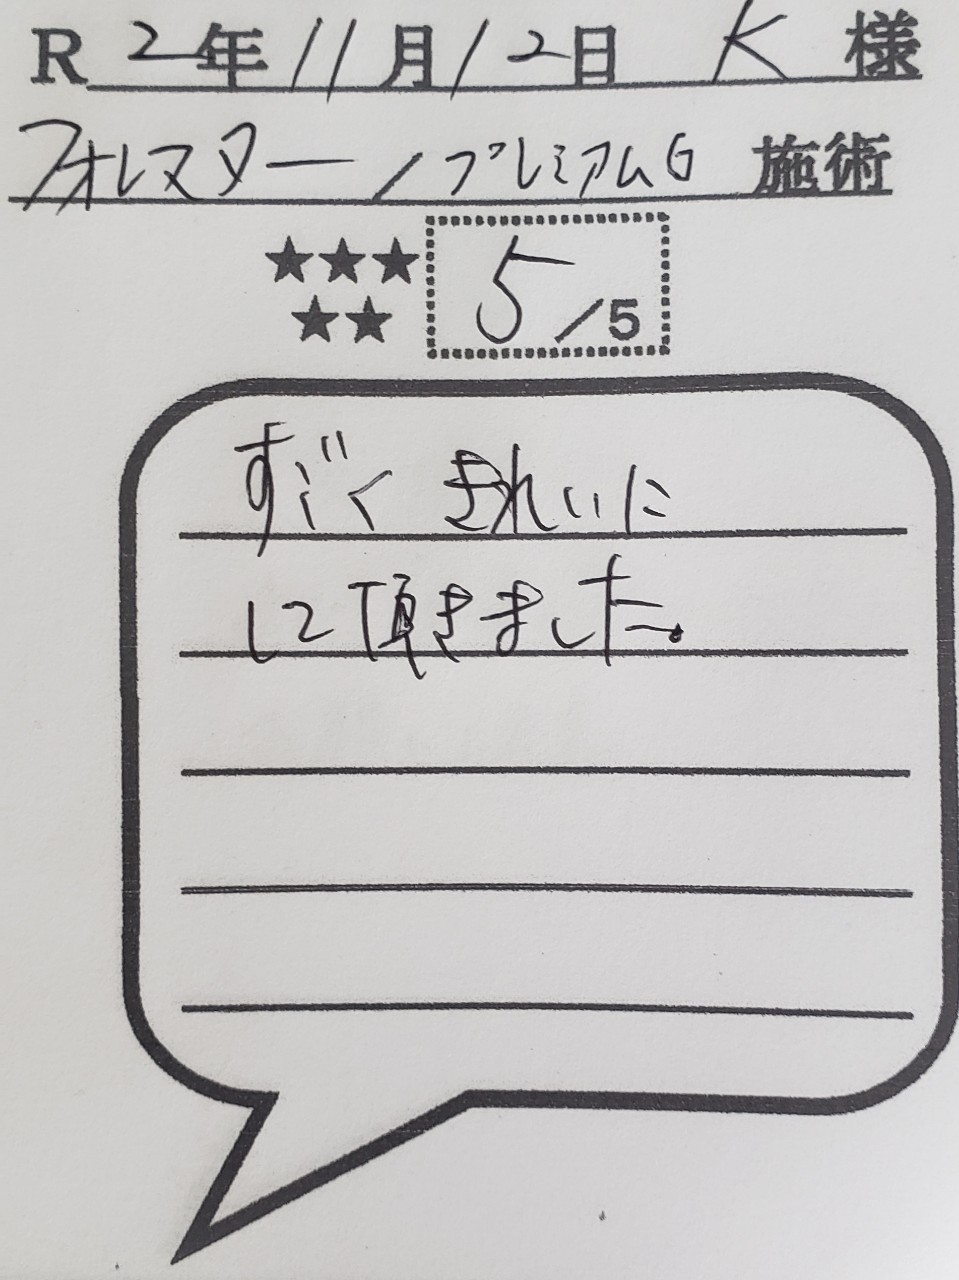 R2年11月12日 K 様
フォレスター/プレミアムG 施術
★★★
★★
5/5
すごくきれいに
して頂きました。